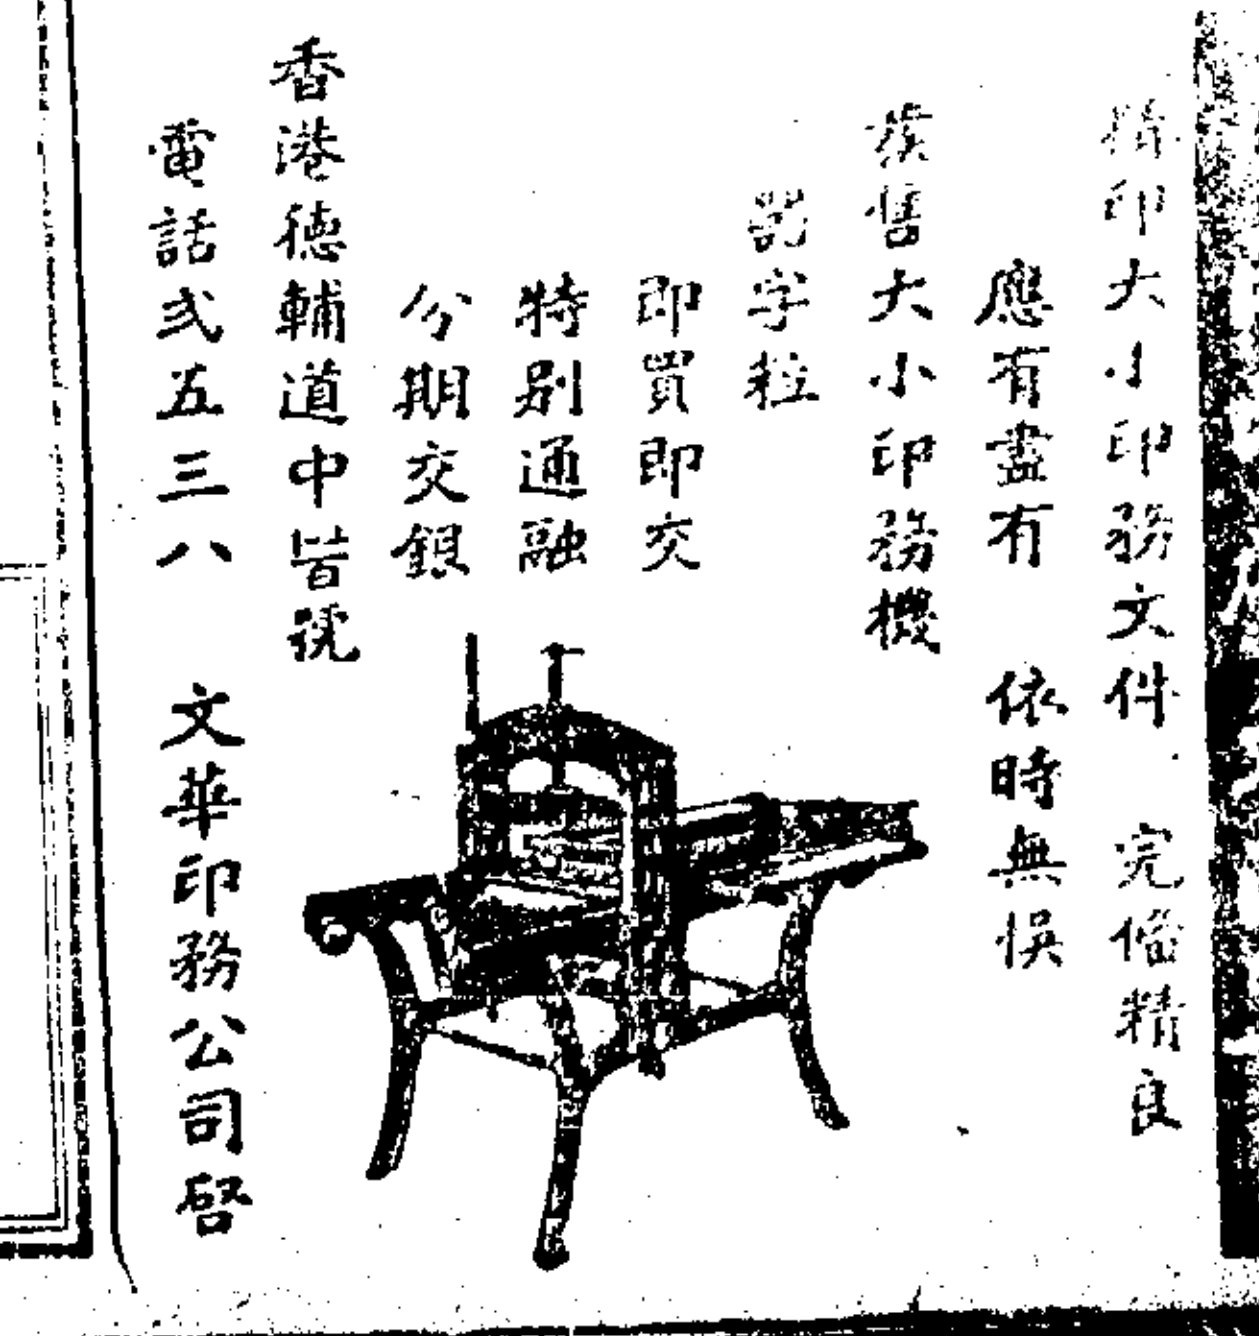 精印大小印務文件 完備精良
應有盡有 依時無悞
發售大小印務機
字粒
即買即交
特别通融
分期交銀
香港德輔道中號
電話弍五三八 文華印務公司啓